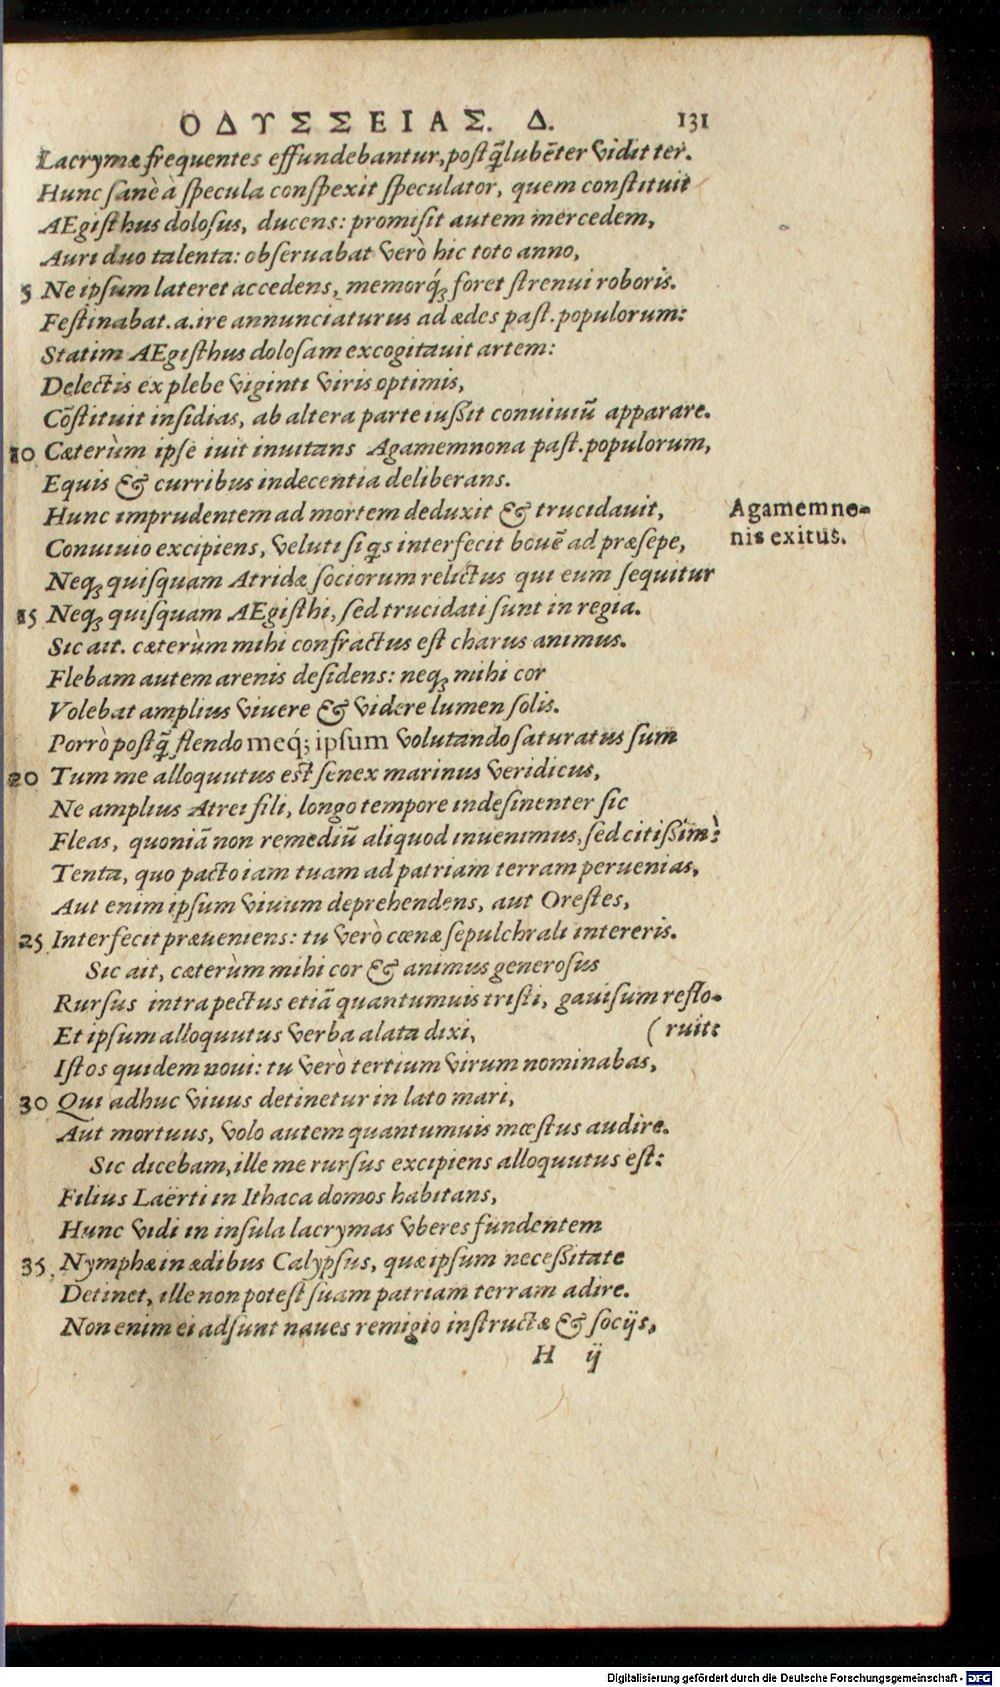 ΟΔΥΣΣΕΙΑΣ. Δ. 131
Lacrymæ frequentes effundebantur, postq̃ lubẽter vidit ter.
Hunc sanè à specula conspexit speculator, quem constituit
AEgisthus dolosus, ducens: promisit autem mercedem,
Auri duo talenta: obseruabat verò hic toto anno,
5 Ne ipsum lateret accedens, memorq́; foret strenui roboris.
Festinabat.a.ire annunciaturus ad ædes past.populorum:
Statim AEgisthus dolosam excogitauit artem:
Delectis ex plebe viginti viris optimis,
Cõstituit insidias, ab altera parte iußit conuiuiũ apparare.
10 Cæterùm ipse iuit inuitans Agamemnona past.populorum,
Equis & curribus indecentia deliberans.
Hunc imprudentem ad mortem deduxit & trucidauit,
Agamemno-
nis exitus.
Conuiuio excipiens, veluti si q̃s interfecit bouẽ ad præsepe,
Neq; quisquam Atridæ sociorum relictus qui eum sequitur
15 Neq; quisquam AEgisthi, sed trucidati sunt in regia.
Sic ait. cæterùm mihi confractus est charus animus.
Flebam autem arenis desidens: neq; mihi cor
Volebat amplius viuere & videre lumen solis.
Porrò postq̃ flendo meq́; ipsum volutando saturatus sum
20 Tum me alloquutus est senex marinus veridicus,
Ne amplius Atrei fili, longo tempore indesinenter sic
Fleas, quoniã non remediũ aliquod inuenimus, sed citißimè:
Tenta, quo pacto iam tuam ad patriam terram peruenias,
Aut enim ipsum viuum deprehendens, aut Orestes,
25 Interfecit præueniens: tu verò cœnæ sepulchrali intereris.
Sic ait, cæterùm mihi cor & animus generosus
Rursus intra pectus etiã quantumuis tristi, gauisum reflo-
Et ipsum alloquutus verba alata dixi, (ruit:
Istos quidem noui: tu verò tertium virum nominabas,
30 Qui adhuc viuus detinetur in lato mari,
Aut mortuus, volo autem quantumuis mœstus audire.
Sic dicebam, ille me rursus excipiens alloquutus est:
Filius Laërti in Ithaca domos habitans,
Hunc vidi in insula lacrymas vberes fundentem
35 Nymphæ in ædibus Calypsus, quæ ipsum neceßitate
Detinet, ille non potest suam patriam terram adire.
Non enim ei adsunt naues remigio instructæ & socijs,
H ij
Digitalisierung gefördert durch die Deutsche Forschungsgemeinschaft - DFG